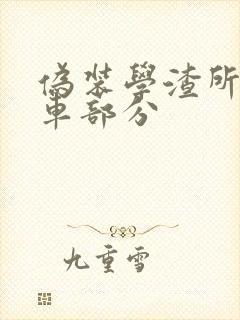 偽裝學渣所
車部分
九重雪